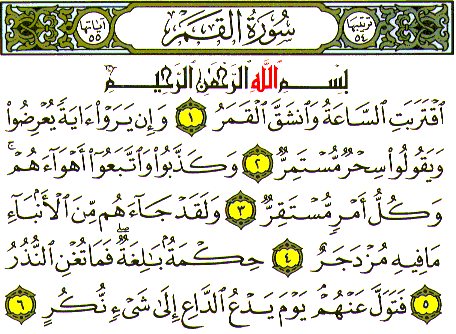 ترتيبها ٥٤ سُورَةُ القَمَر آياتها ٥٥
بِسْمِ اللَّهِ الرَّحْمَٰنِ الرَّحِيمِ
ٱقْتَرَبَتِ ٱلسَّاعَةُ وَٱنشَقَّ ٱلْقَمَرُ ١ وَإِن يَرَوْا۟ ءَايَةً يُعْرِضُوا۟
وَيَقُولُوا۟ سِحْرٌ مُّسْتَمِرٌّ ٢ وَكَذَّبُوا۟ وَٱتَّبَعُوٓا۟ أَهْوَآءَهُمْ ۚ
وَكُلُّ أَمْرٍ مُّسْتَقِرٌّ ٣ وَلَقَدْ جَآءَهُم مِّنَ ٱلْأَنۢبَآءِ
مَا فِيهِ مُزْدَجَرٌ ٤ حِكْمَةٌۢ بَٰلِغَةٌ ۖ فَمَا تُغْنِ ٱلنُّذُرُ
٥ فَتَوَلَّ عَنْهُمْ ۘ يَوْمَ يَدْعُ ٱلدَّاعِ إِلَىٰ شَىْءٍ نُّكُرٍ ٦